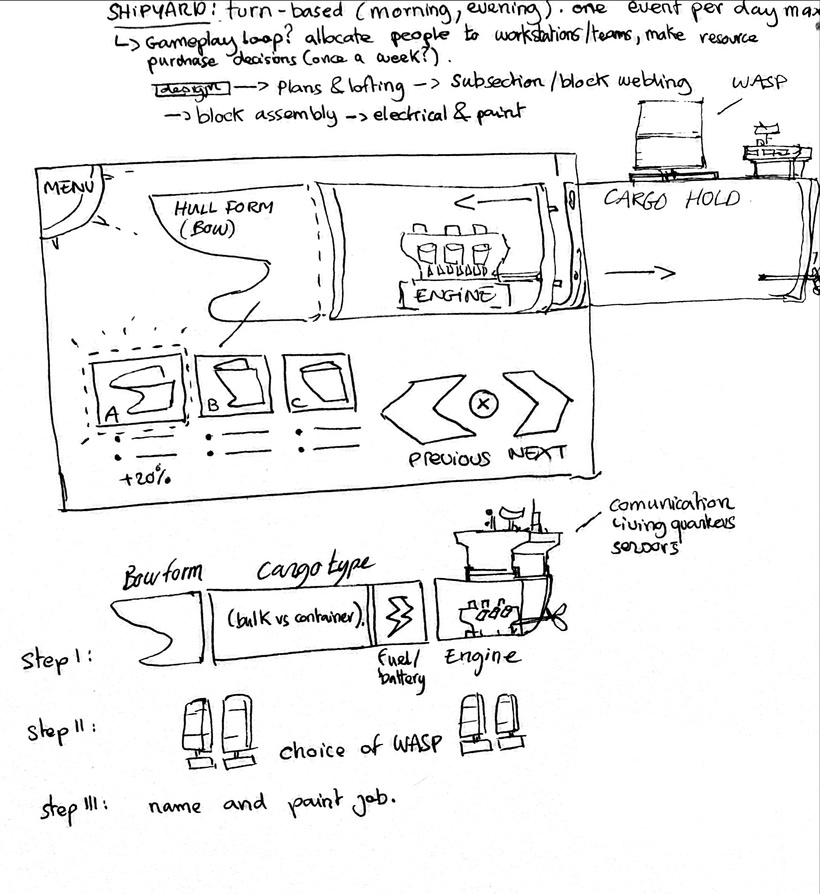 SHIPYARD: turn-based (morning, evening). one event per day max
↳ Gameplay loop? allocate people to workstations/teams, make resource
purchase decisions (once a week?).
design → Plans & lofting → Subsection/block welding
→ block assembly → electrical & paint
WASP
MENU
HULL FORM
(BOW)
CARGO HOLD
ENGINE
A
B
C
+20%
X
PREVIOUS NEXT
comunication
living quankers
sensors
Bow form
Cargo type
(bulk vs container).
Step I:
Fuel/
battery
Engine
Step II:
choice of WASP
step III: name and paint job.